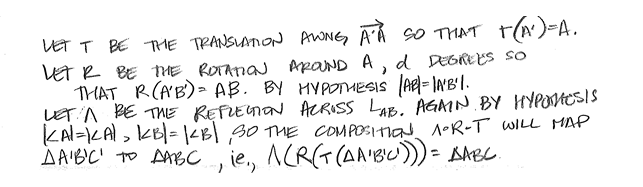 LET T BE THE TRANSLATION ALONG A'A SO THAT T(A')=A.
LET R BE THE ROTATION AROUND A, d DEGREES SO
THAT R(A'B') = AB. BY HYPOTHESIS |AB|=|A'B'|.
LET Λ BE THE REFLECTION ACROSS LAB. AGAIN BY HYPOTHESIS
|∠A|=|∠A|, |∠B|=|∠B|, SO THE COMPOSITION Λ∘R∘T WILL MAP
ΔA'B'C' TO ΔABC, ie., Λ(R(T(ΔA'B'C')))= ΔABC.